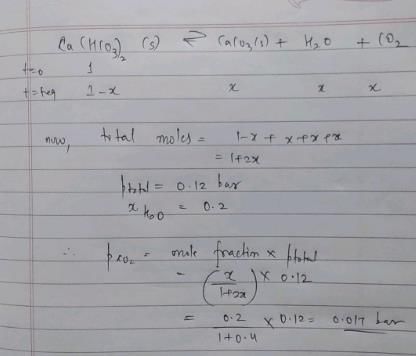 Ca(HCO3)2 (s) ⇌ CaCO3(s) + H2O + CO2
t=0 1
t=teq 1-x x x x
now, total moles = 1-x + x+x+x
= 1+2x
ptotal = 0.12 bar
xH2O = 0.2
∴ pCO2 = mole fraction x ptotal
= (x/1+2x) x 0.12
= 0.2/1+0.4 x 0.12 = 0.017 bar